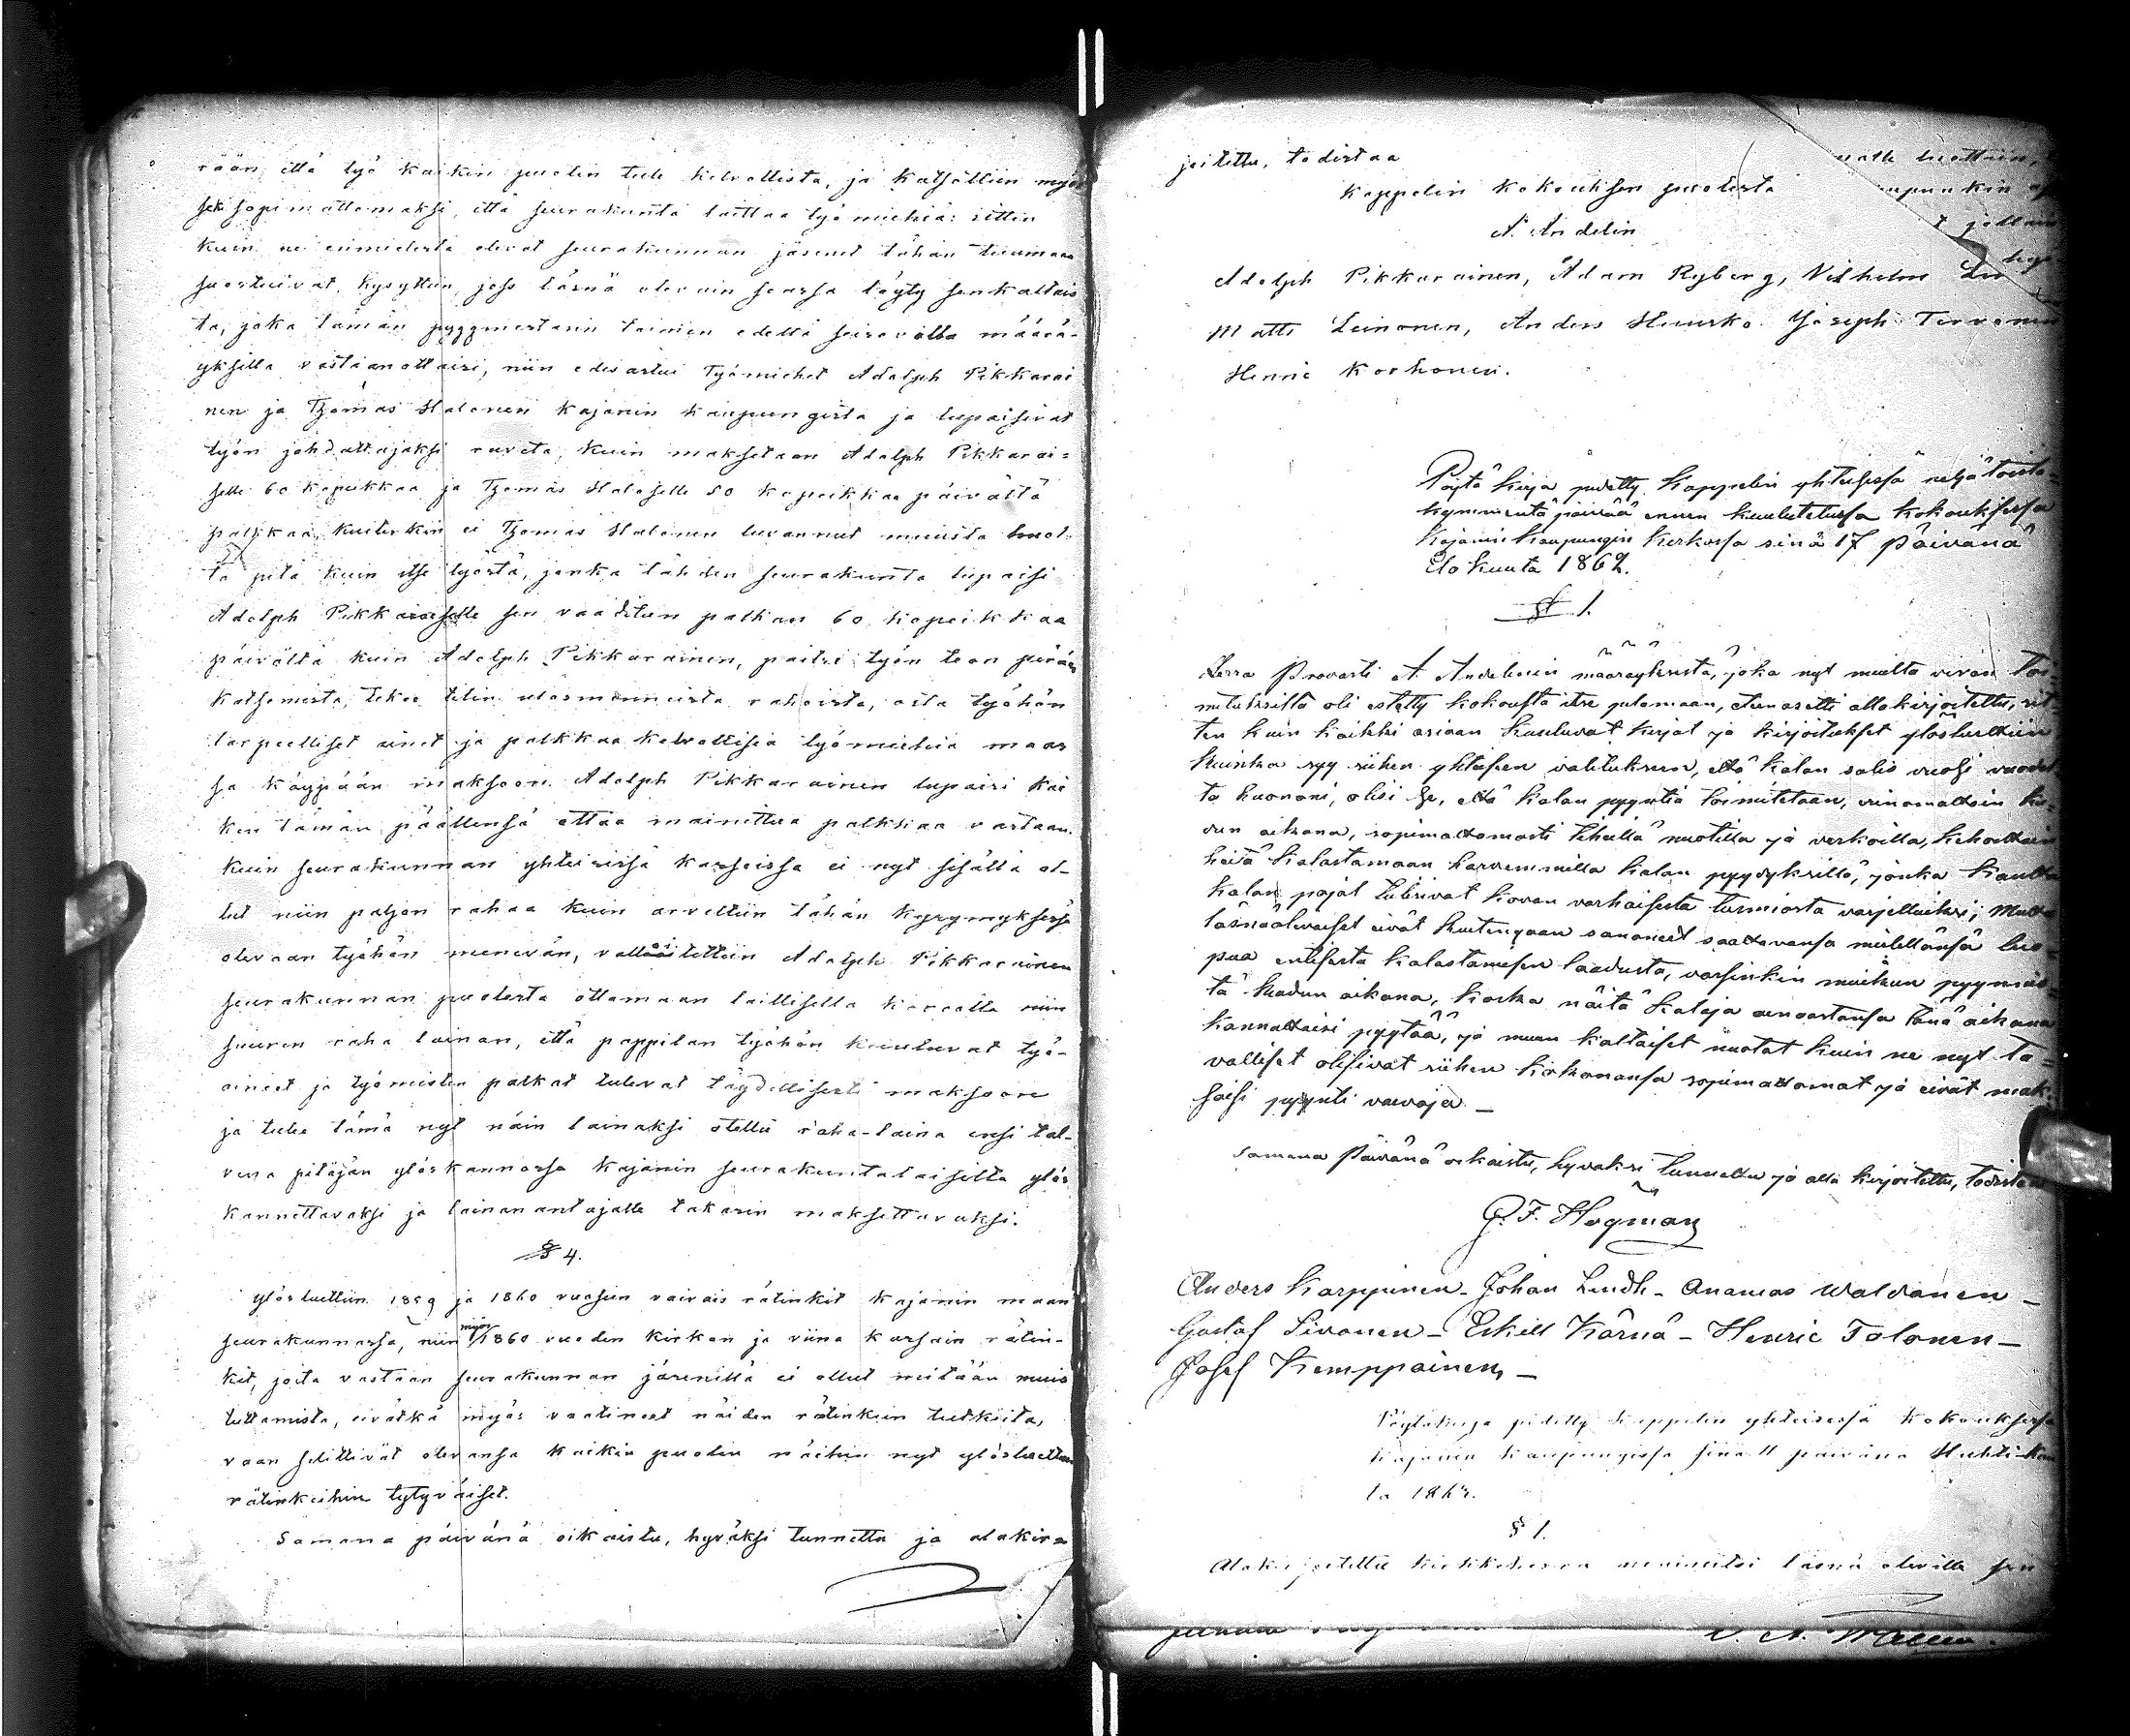 rään, että työ kaikin puolin tule kelvollista, ja katsottiin myös
seki sopimattomaksi, että seurakunta laittaa työmiehiä: sitten
kuin ne enimielestä olevat seurakunnan jäsenet tähän tuumaan
suostuivat, kysyttiin, joss läsnä olevain seassa löyty senkaltais
ta, joka tämän pyggmestarin toimen edellä seisovalla määrä-
yksillä vastaanottaisi, niin edesastui Työmiehet Adolph Pikkarai
nen ja Thomas Halonen Kajanin kaupungista ja lupaisivat
työn johdattajaksi ruveta, kuin maksetaan Adolph Pikkarai=
selle 60 kopeikkaa ja Thomas Haloselle 50 kopeikkaa päivältä
palkkaa, kuitenkin ei Thomas Halonen luvannut muusta huol-
ta pitä kuin itse työstä, jonka tähden seurakunta lupaisi
Adolph Pikkaraiselle sen vaaditun palkan 60 kopeikkaa
päivältä kuin Adolph Pikkarainen, paitsi työn teon perään
katsomista, tekee tilin ulosmenneistä rahoista, osta työhön
tarpeelliset ainet ja palkkaa kelvollisia työmiehiä maas
sa käypään maksoon. Adolph Pikkarainen lupaisi kai
ken tämän päällensä ottaa mainittua palkkaa vastaan.
Kuin seurakunnan yhteisissä kasseissa ei nyt sisällä ol-
lut niin paljon rahaa kuin arveltiin tähän kysymyksessä
olevaan työhön menevän, valtuutettiin Adolph Pikkarainen
seurakunnan puolesta ottamaan laillisella korolla niin
suuren raha lainan, että pappilan työhön kuuluvat työ-
aineet ja työmiesten palkat tulevat täydellisesti maksoon
ja tulee tämä nyt näin lainaksi otettu raha-laina ensi tal-
vena pitäjän ylöskannossa Kajanin seurakuntalaisilta ylös
kannettavaksi ja lainanantajalle takasin maksettavaksi.
§ 4.
Ylösluettiin 1859 ja 1860 vuosien vaivais rätinkit Kajanin maan
seurakunnassa, niin myös 1860 vuoden kirkon ja viina kassain rätin-
kit, joita vastaan seurakunnan jäsenillä ei ollut mitään muis
tuttamista, eivätkä myös vaatineet näiden rätinkein tutkiita,
vaan selittivät olevansa kaikin puolin näihin nyt ylösluettuin
rätinkeihin tytyväiset.
Samana päivänä oikaistu, hyväksi tunnettu ja alakir=
joitettu, todistaa
Kappelin kokouksen puolesta
A. Andelin
Adolph Pikkarainen, Adam Ryberg, Vilhelm
Matts Leinonen, Anders Huusko. Joseph Tervonen
Henric Korhonen.
Pöytä kirja pidetty Kappelin yhteisessä neljätoista-
kymmentä päivää ennen kuulutetussa kokouksessa
Kajanin Kaupungin kirkossa sinä 17 päivänä
Elokuuta 1862.
§ 1.
Herra Provasti A. Andelinin määräyksestä, joka nyt muilta viran toi
mituksilta oli estetty kokousta itse pitämään, etenasetti allakirjoitettu, sit
ten kuin kaikki asiaan kuuluvat kirjat ja kirjoitukset ylösluettiin
kuinka syy siihen yhteisen valituksen, että kalan salis vuosi vuodel
ta huononi, olisi se, että kalan pyyntiä toimitetaan, erinomattain ku-
dun aikana, sopimattomasti tiheillä nuotilla ja verkoilla, kehoittain
heitä kalastamaan harvemmilla kalan pyydyksillä, jonka kautta
kalan pojat tulisivat kovan varhaisesta turmiosta varjelluiksi; Mutta
läsnäolevaiset eivät kuitengaan sanoneet saattavansa mielellänsä luo-
pua entisestä kalastamisen laadusta, varsinkin muikun pyynnis-
tä kudun aikana, koska näitä kaloja ainoastansa tänä aikana
kannattaisi pyytää, ja muun kaltaiset nuotat kuin ne nyt ta=
valliset olisivat siihen kokonansa sopimattomat ja eivät mak-
saisi pyynti vaivoja. —
Samana Päivänä oikaistu, hyväksi tunnettu ja alla kirjoitettu, todistaa
G. F. Hogman
Anders Karppinen – Johan Lindh – Ananias Waldanen –
Gustaf Sivonen – Eskill Kärnä – Henric Tolonen –
Josef Kemppainen, –
Pöytäkirja pidetty Kappelin yhteisessä kokouksessa
Kajanin kaupungissa sinä 11 päivänä Huhti-kuu
ta 186
§ 1.
Alakirjoitettu kirkkoherra läsnä oleville seu